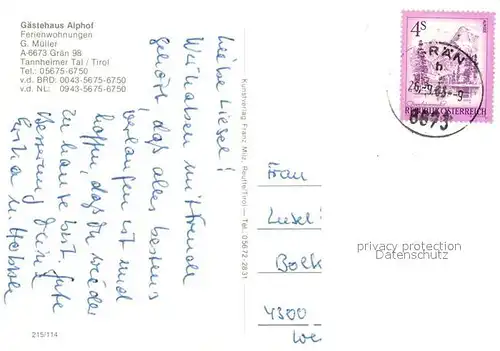 Gästehaus Alphof
Ferienwohnungen
G. Müller
A-6673 Grän 98
Tannheimer Tal / Tirol
Tel.: 05675-6750
v.d. BRD: 0043-5675-6750
v.d. NL: 0943-5675-6750
Liebe Liesel!
Wir haben mit Freude
gehört, daß alles bestens
verlaufen ist und
hoffen, daß du wieder
zu Hause bist. Gute
Besserung Deine
Erika u.
215/114
Kunstverlag Franz Milz, Reutte/Tirol — Tel. 05672-2831
4S
REPUBLIK ÖSTERREICH
GRÄN
h
-9
6673
Frau
Liesel
Bolk
4300
privacy protection
Datenschutz